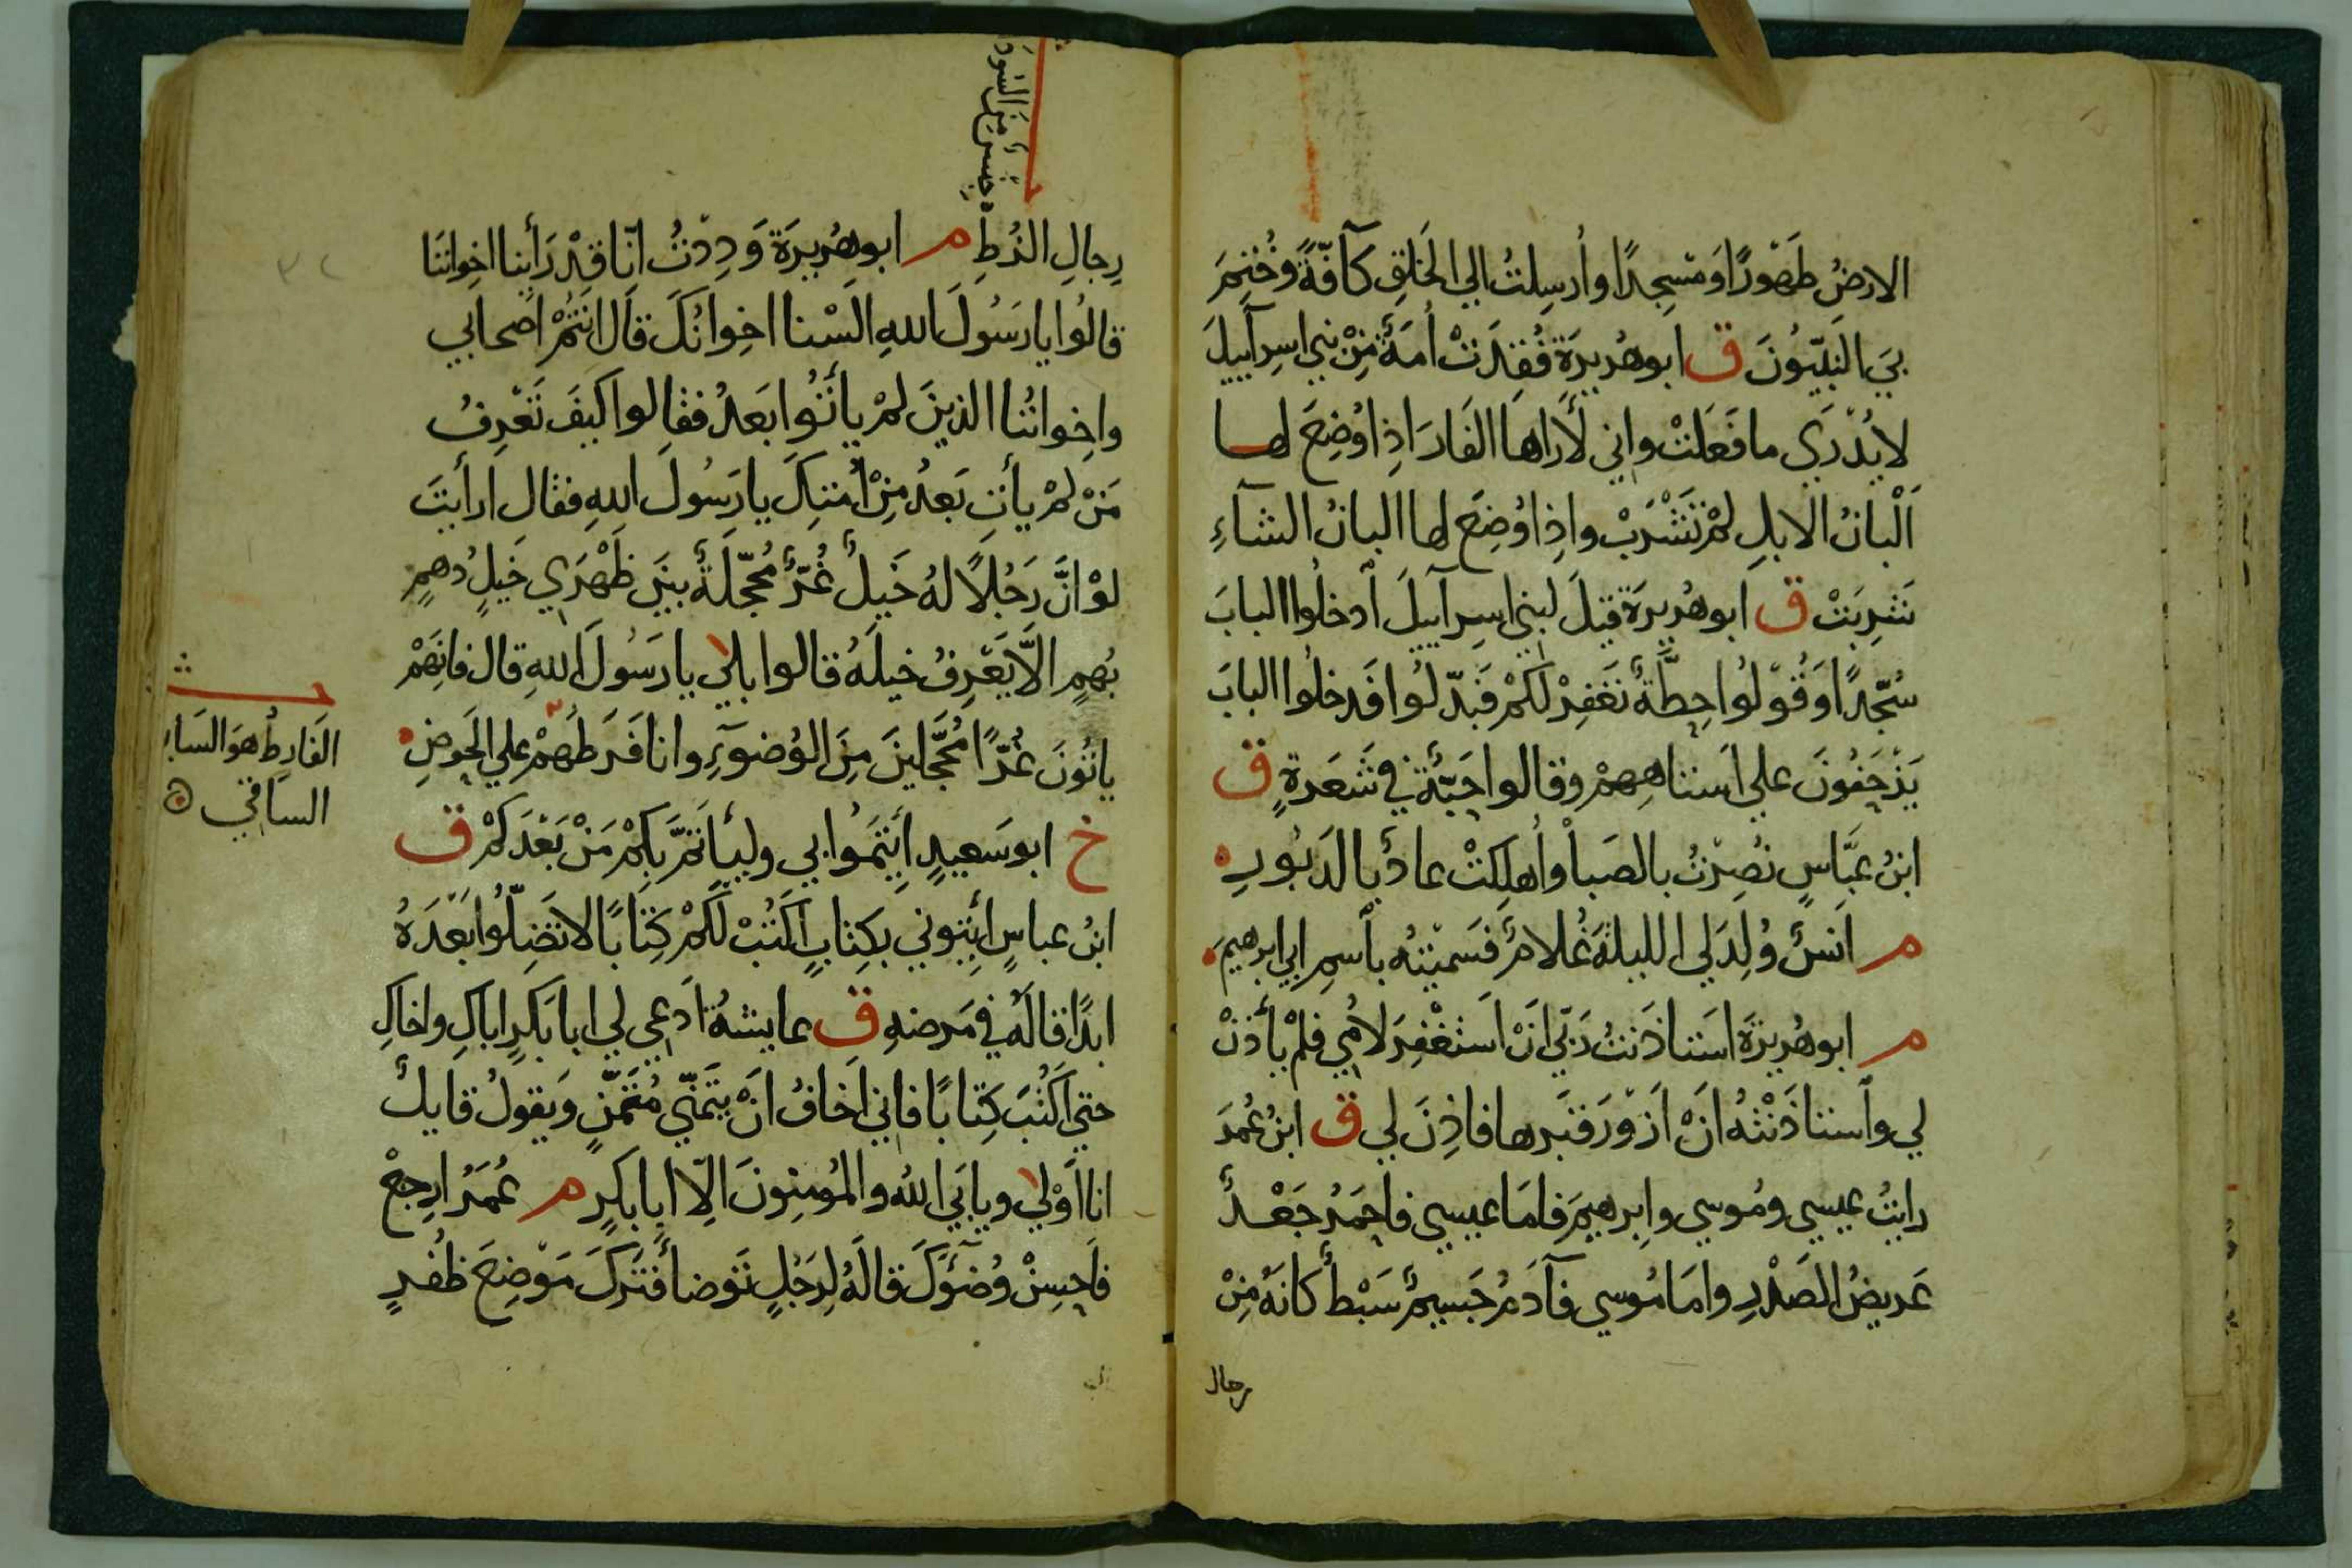 الارضُ طَهُورًا وَمَسْجِدًا وأُرْسِلتُ الي الخَلقِ كآفّةً وخُتِمَ
بيَ النَبِيّونَ ق ابوهُريرَة فُقِدَتْ أُمَةٌ مِنْ بني اسرآييلَ
لا يُدْرَي ما فَعَلتْ واني لأُراها الفَارَ اذا وُضِعَ لها
اَلْبانُ الابلِ لمْ تَشْرَبْ واذا وُضِعَ لها البانُ الشآءِ
شَرِبَتْ ق ابوهُريرَة قيلَ لبني اسرآييلَ اُدخلُوا البابَ
سُجّدًا وَقُوْلُوا حِطّةٌ نَغفِرْ لكمْ فبَدّلُوا فَدخلُوا البابَ
يَزْحَفُونَ علي اَستاهِهِمْ وقالوا حَبّةٌ في شَعَرةٍ ق
ابنُ عبَّاسٍ نُصِرْتُ بالصَبا وأُهلِكتْ عادٌ بالدَبُورِ
م اَنسٌ وُلِدَ لي الليلةَ غُلامٌ فسَميْتُه بآسمِ ابي ابرهيمَ
م ابوهُريرَة استاذَنتُ رَبّي انْ اَستغْفِرَ لامُي فلمْ يأذنْ
لي وآستاذَنْتُه انْ اَزوْرَ قبَرها فاذِنَ لي ق ابنُ عُمَرَ
رايتُ عيسي ومُوسي وابرهيمَ فامَا عيسي فاحمَرُ جَعْدٌ
عَريضُ الصَدْرِ وامَا مُوسي فآدَمُ جَسيمٌ سَبْطٌ كانهُ مِنْ
رجال
جنسٌ مِنَ السُودَ
رِجالِ الزُطِّ م ابوهُريرَة وَدِدْتُ انّا قدْ رَأينا اخِواننَا
قالُوا يا رَسُولَ اللهِ الَسْنا اخِوانُكَ قالَ انتُمْ اصحابي
واِخِوانُنا الذينَ لمْ يأتُوا بعدُ فقالوا كيفَ تَعْرِفُ
مَنْ لمْ يأتِ بَعدُ مِنْ اُمتِكَ يا رَسُولَ اللهِ فقال ارأيتَ
لوْ انَّ رَجُلًا لهُ خَيلٌ غُرٌّ مُحجّلَةٌ بينَ ظَهْرَي خَيلٍ دُهمٍ
بُهمٍ الَا يَعْرِفُ خيلَهُ قالوا بلي يا رَسُولَ اللهِ قال فانهَمْ
ياتُونَ غُرًّا مُحجَّلينَ مِنَ الوُضوءِ وانا فَرَطهُمْ علي الحَوضِ
الفَارِطُ هوَ السَا
السَاقي
خ ابوسَعيدٍ اِئتمُوا بي وليأتَمَّ بكمْ مَنْ بَعْدَكمْ ق
ابنُ عباسٍ اِئتوني بكتابٍ اكتُبْ لكمْ كِتابًا لا تَضَلّوا بَعْدَهُ
ابدًا قالهُ في مَرضهِ ق عايشةُ اُدعي لي ابا بَكرٍ اباكِ واخاكِ
حتي اَكتُبَ كِتابًا فاني اَخافُ انْ يتَمنّي مُتمَنٍّ وَيقولُ قايلٌ
انا اَوْلي ويابَي اللهُ والمُؤمنونَ الّا ابا بَكرٍ م عُمَرُ ارجِعْ
فاَحسِنْ وُضوءَكَ قالهُ لِرَجُلٍ تَوضأ فَترَكَ مَوْضِعَ ظُفرٍ